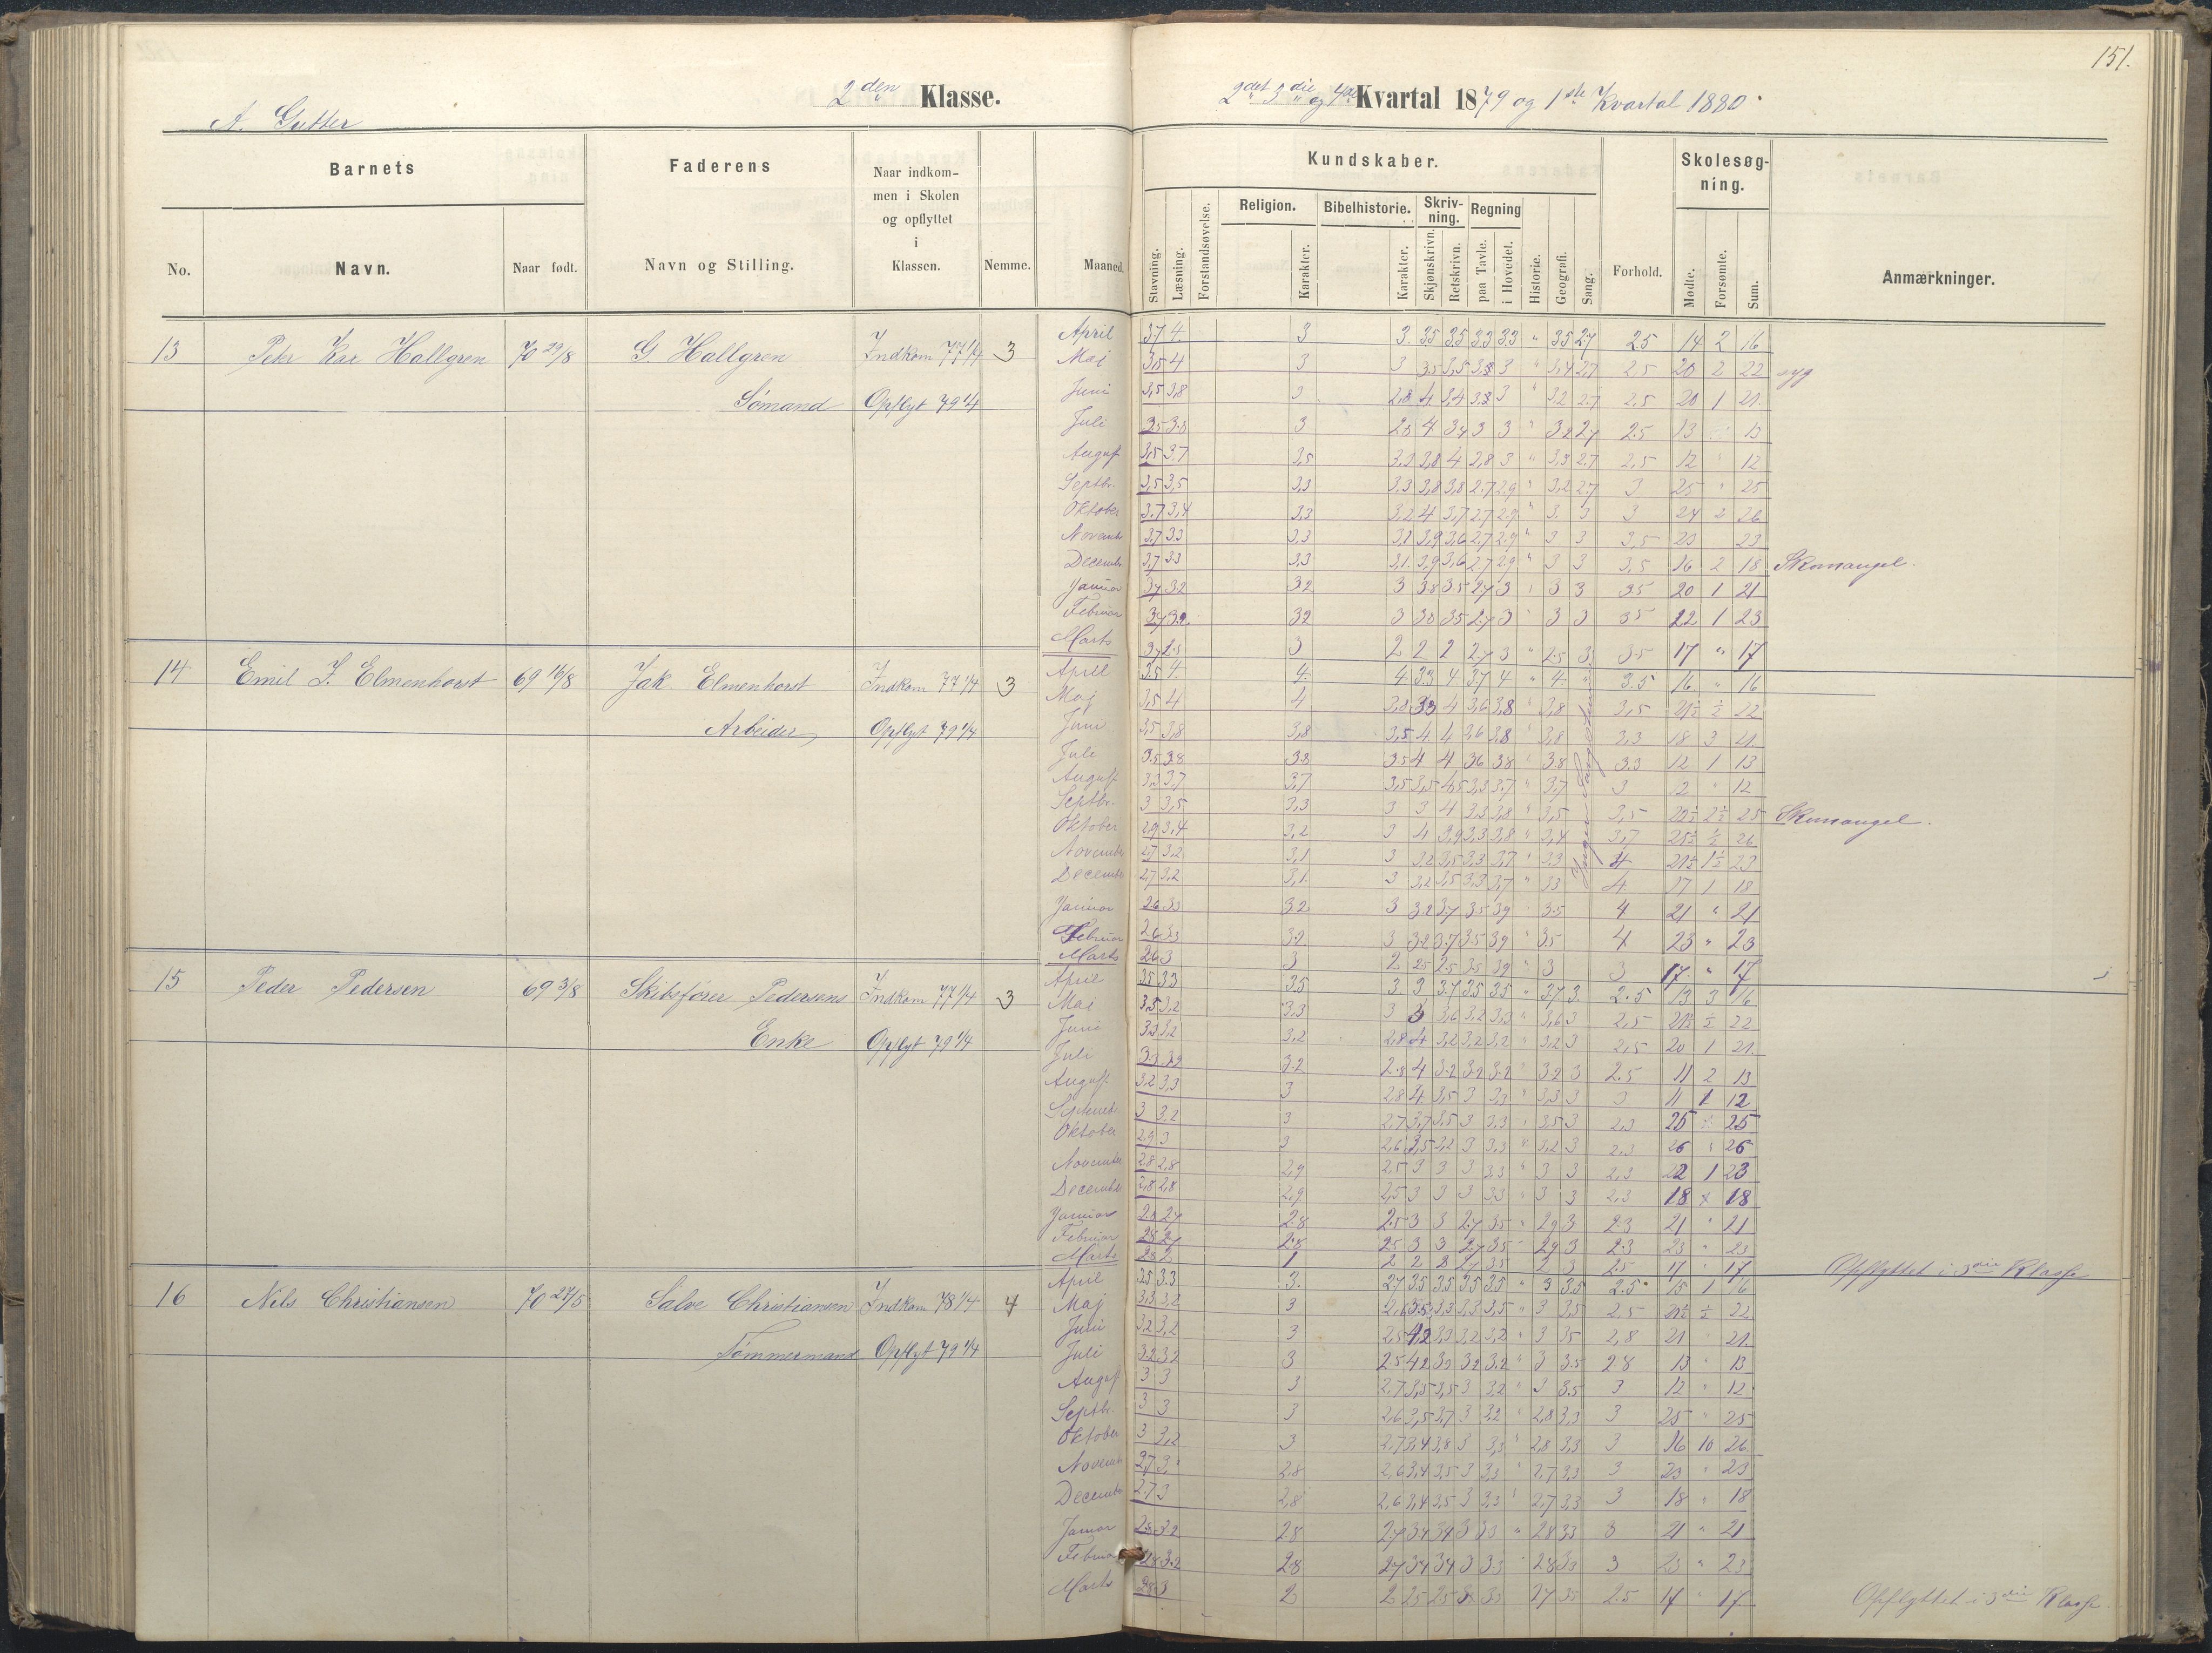 151.
A. Gutter
2den Klasse.
2det 3die og 4de Kvartal 1879 og 1ste Kvartal 1880.
Barnets
Faderens
Naar indkommen i Skolen og opflyttet i Klassen.
Nemme.
Maaned.
Kundskaber.
Forhold.
Skolesøgning.
Anmærkninger.
No.
Navn.
Naar født.
Navn og Stilling.
Stavning.
Læsning.
Forstandsøvelse.
Religion.
Karakter.
Bibelhistorie.
Karakter.
Skrivning.
Skjønskrivn.
Retskrivn.
Regning
paa Tavle.
i Hovedet.
Historie.
Geografi.
Sang.
Mødte.
Forsømte.
Sum.
13 Peter Kar Hallgren 70 29/8 G. Hallgren Indkom 77 1/4 3
Sømand Opflyt 79 1/4
April 3.7 4. 3 3. 3.5 3.5 3.3 3.3 " 3.5 2.7 2.5 14 2 16
Maj 3,5 4 3 3 3.5 3,5 3 " 3,4 2,7 2.5 20 2 22 syg
Juni 3,5 3,8 3 2,8 4 3,4 3.3 3 " 3,2 2.7 2,5 20 1 21.
Juli 3.5 3.8 3 2.8 4 3.4 3 3 " 3.2 2.7 2.5 13 13
August 3,5 3.7 3,5 3,3 3,8 4 2,8 3 " 3,3 2.7 2,5 12 " 12
Septbr. 3,5 3,5 3,3 3.3 3,8 3,8 2.7 2.9 " 3,2 2.7 3 25 " 25
Oktober 3.7 3,4 3,3 3,2 4 3,7 2.7 2.9 " 3. 3 3 24 2 26
Novemb 3.7 3.3 3,3 3,1 3,9 3,6 2.7 2.9 " 3 3 3,5 23 23
Decemb 3,7 3.3 3,3 3,1. 3,9 3,6 2.7 2.9 " 3 3 3,5 16 2 18 Skomangel.
Januar 3.7 3.2 3.2 3 3.8 3.5 2.7 3 " 3 3 3.5 20 1 21
Februar 3.7 3.2 3.2 3 3.5 2.7 3 " 3 3 3.5 22 1 23
Marts 3 2 2 2 2.7 3 " 2.5 3. 3.5 17 " 17
14 Emil J. Elmenhorst 69 16/8 Jak Elmenhorst Indkom 77 1/4 3
Arbeider Opflyt 79 1/4
April 3.5 4. 4. 4. 3.3 4. 3.7 4 " 4. " 3.5 16. " 16
Maj 3,5 4 4 3,8 3.3 4 3,6 3,8 " 3,8 3,5 21½ ½ 22
Juni 3,5 3,8 3,8 3,5 4 4 3,6 3,8 " 3,8 3,3 18 3 21.
Juli 3.5 3.8 3.8 3.5 4 4 3.6 3.8 " 3.8 3.3 12 1 13
August 3,3 3,7 3,7 3,5 3,5 4,5 3,3 3,7 " 3,7 3 " 12
Septbr. 3 3,5 3,3 3 3 4 3,3 3,8 " 3,5 3,5 22½ 2½ 25 Skomangel.
Oktober 2,9 3,4 3,2 3 4 3,9 3,3 3,8 " 3,4 3,7 25½ ½ 26
Novemb 2.7 3,2 3,1 3 3.2 3,5 3,3 3,7 " 3.3 4 21½ 1½ 23
Decemb 2.7 3,2 3,1. 3 3,2 3,5 3,3 3,7 " 3.3 4. 17 1 18
Januar 2.6 3.3 3.2 3 3.2 3.7 3.5 3.9 3.5 4 21 " 21
Februar 2.6 3.3 3.2 3 3.2 3.7 3.5 3.9 " 3.5 4 23 " 23
Marts 2.6 3 3 2 2.5 2.5 3.5 3.9 " 3 3 17. " 17
Ingen Sangstemme
15 Peder Pedersen 69 3/8 Skibsfører Pedersens Indkom 77 1/4 3
Enke Opflyt 79 1/4
April 3.5 3.3 3.5 3. 3 3.7 3.5 3.5 " 3.7 3. 2.5 13 3 16
Mai 3.5 3.2 3.3 3 3 3,6 3,2 3,3 " 3,6 3 2,5 21½ ½ 22
Juni 3.3 3.2 3,2 2,8 4 3,2 3,2 3,2 " 3,2 3 2,5 20 1 21.
Juli 3.3 3.2 3.2 2.8 4 3.2 3.2 3.2 " 3.2 3 2.5 11 2 13
August 3,2 3,3 3 2.8 4 3,5 3 3.3 " 3,3 3 3 11 1 12
Septemb 3 3,2 3 2.7 3,7 3.5 3 3.3 " 3.5 3 2.3 25 " 25
Oktober 2.9 3 3 2,6 3,5 3,2 3 3,3 " 3,2 3 2.3 26 " 26
Novemb 2.8 2,8 2,9 2,5 3 3 3 3.3 " 3 3 2,3 22 1 23
Decemb 2,8 2,8 2,9. 2,5 3 3 3 3.3 " 3 3 2,3 18 " 18
Januar 2.8 2.7 2.8 2.5 3 3 2.7 3.5 " 2.9 3 2.3 21 " 21
Februar 2.8 2.7 2.8 2.5 3 3 2.7 3.5 " 2.9 3 2.3 23 " 23
Marts 2.8 2 1 2 2 2 2.7 3.5 2 3 2.5 17 " 17 Opflyttet i 3die Klasse
16 Nils Christiansen 70 27/5 Salve Christiansen Indkom 78 1/4 4
Tømmermand Opflyt 79 1/4
April 3.5 3.3 3. 2.7 3.5 3.5 3.5 3.5 " 3 3.5 2.5 15 1 16
Maj 3,3 3,2 3 2,6 3.5 3,3 3,3 3,5 " 3 3,5 2.5 21½ ½ 22
Juni 3.2 3,2 3 2,5 4.2 3,3 3,2 3,2 " 3 3.5 2,8 21 " 21.
Juli 3.2 3.2 3 2.5 4.2 3.2 3.2 " 3 3.5 2.8 13 " 13
August 3 3 3 2.7 3,5 3,5 3 3.2 " 3 3.5 3 12 " 12
Septbr. 3 3 3 2,6 3,5 3,7 3 3,2 " 2,8 3,3 3 25 " 25
Oktober 3 3,2 3 2,7 3,4 3,8 3 3,3 " 2,8 3,3 3 16 10 26
Novemb 2.7 3 2,8 2,6 3,4 3,5 3 3,3 " 2,7 3,3 3 23 " 23
Decemb 2.7 3 2,8 2,6 3,4 3,5 3 3,3 " 2,7 3,3 3 18 " 18
Januar 2.8 3.2 2.8 2.7 3.4 3.4 3 3.3 " 2.8 3.3 3 21 " 21
Februar 2.8 3.2 2.8 2.7 3.4 3.4 3 3.3 2.8 3.3 3 23 " 23
Marts 2.8 3 2 2 2.5 2.5 3 3.3 2.7 3.3 2.5 17 " 17. Opflyttet i 3die Klasse